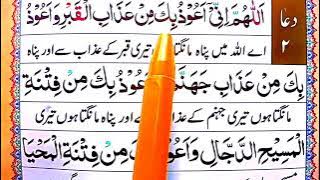 دعا ۲
اَللّٰهُمَّ اِنِّیْۤ اَعُوْذُ بِكَ مِنْ عَذَابِ الْقَبْرِ وَاَعُوْذُ
اے اللہ میں پناہ مانگتا تیری قبر کے عذاب سے اور پناہ
بِكَ مِنْ عَذَابِ جَهَنَّمَ وَاَعُوْذُ بِكَ مِنْ فِتْنَةِ
مانگتا ہوں تیری جہنم کے عذاب سے اور پناہ مانگتا ہوں تیری
الْمَسِیْحِ الدَّجَّالِ وَاَعُوْذُ بِكَ مِنْ فِتْنَةِ الْمَحْیَا